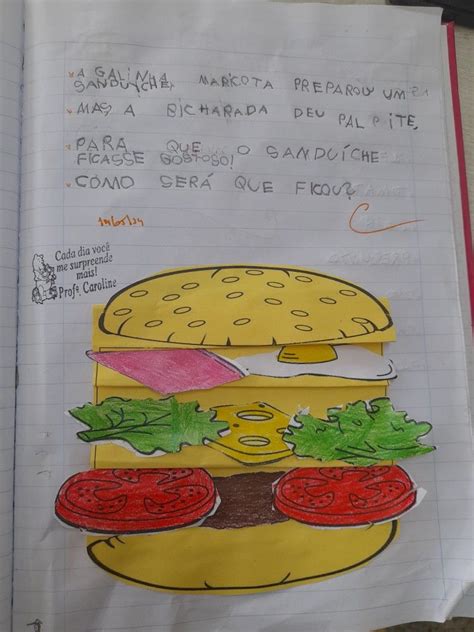 A GALINHA MARICOTA PREPAROU UM
SANDUÍCHE,
MAS A BICHARADA DEU PALPITE,
PARA QUE O SANDUÍCHE
FICASSE GOSTOSO!
COMO SERÁ QUE FICOU?
Cada dia você
me surpreende
mais!
Profª. Caroline